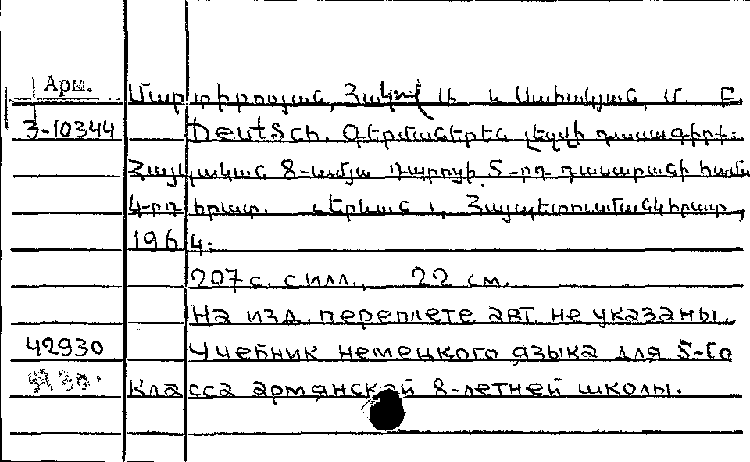 Арм.
Մարտիրոսյան, Հակոբ Ա. և
3-10344 Deutsch. Գերմաներեն լեզվի դասագիրք:
Հայկական 8-ամյա դպրոցի 5-րդ դասարանի համար
4-րդ հրատ. Երևան, Հայպետուսմանկհրատ,
1964:
207 с. с илл., 22 см.
На изд. переплете авт. не указаны.
42930 Учебник немецкого языка для 5-го
класса армянской 8-летней школы.